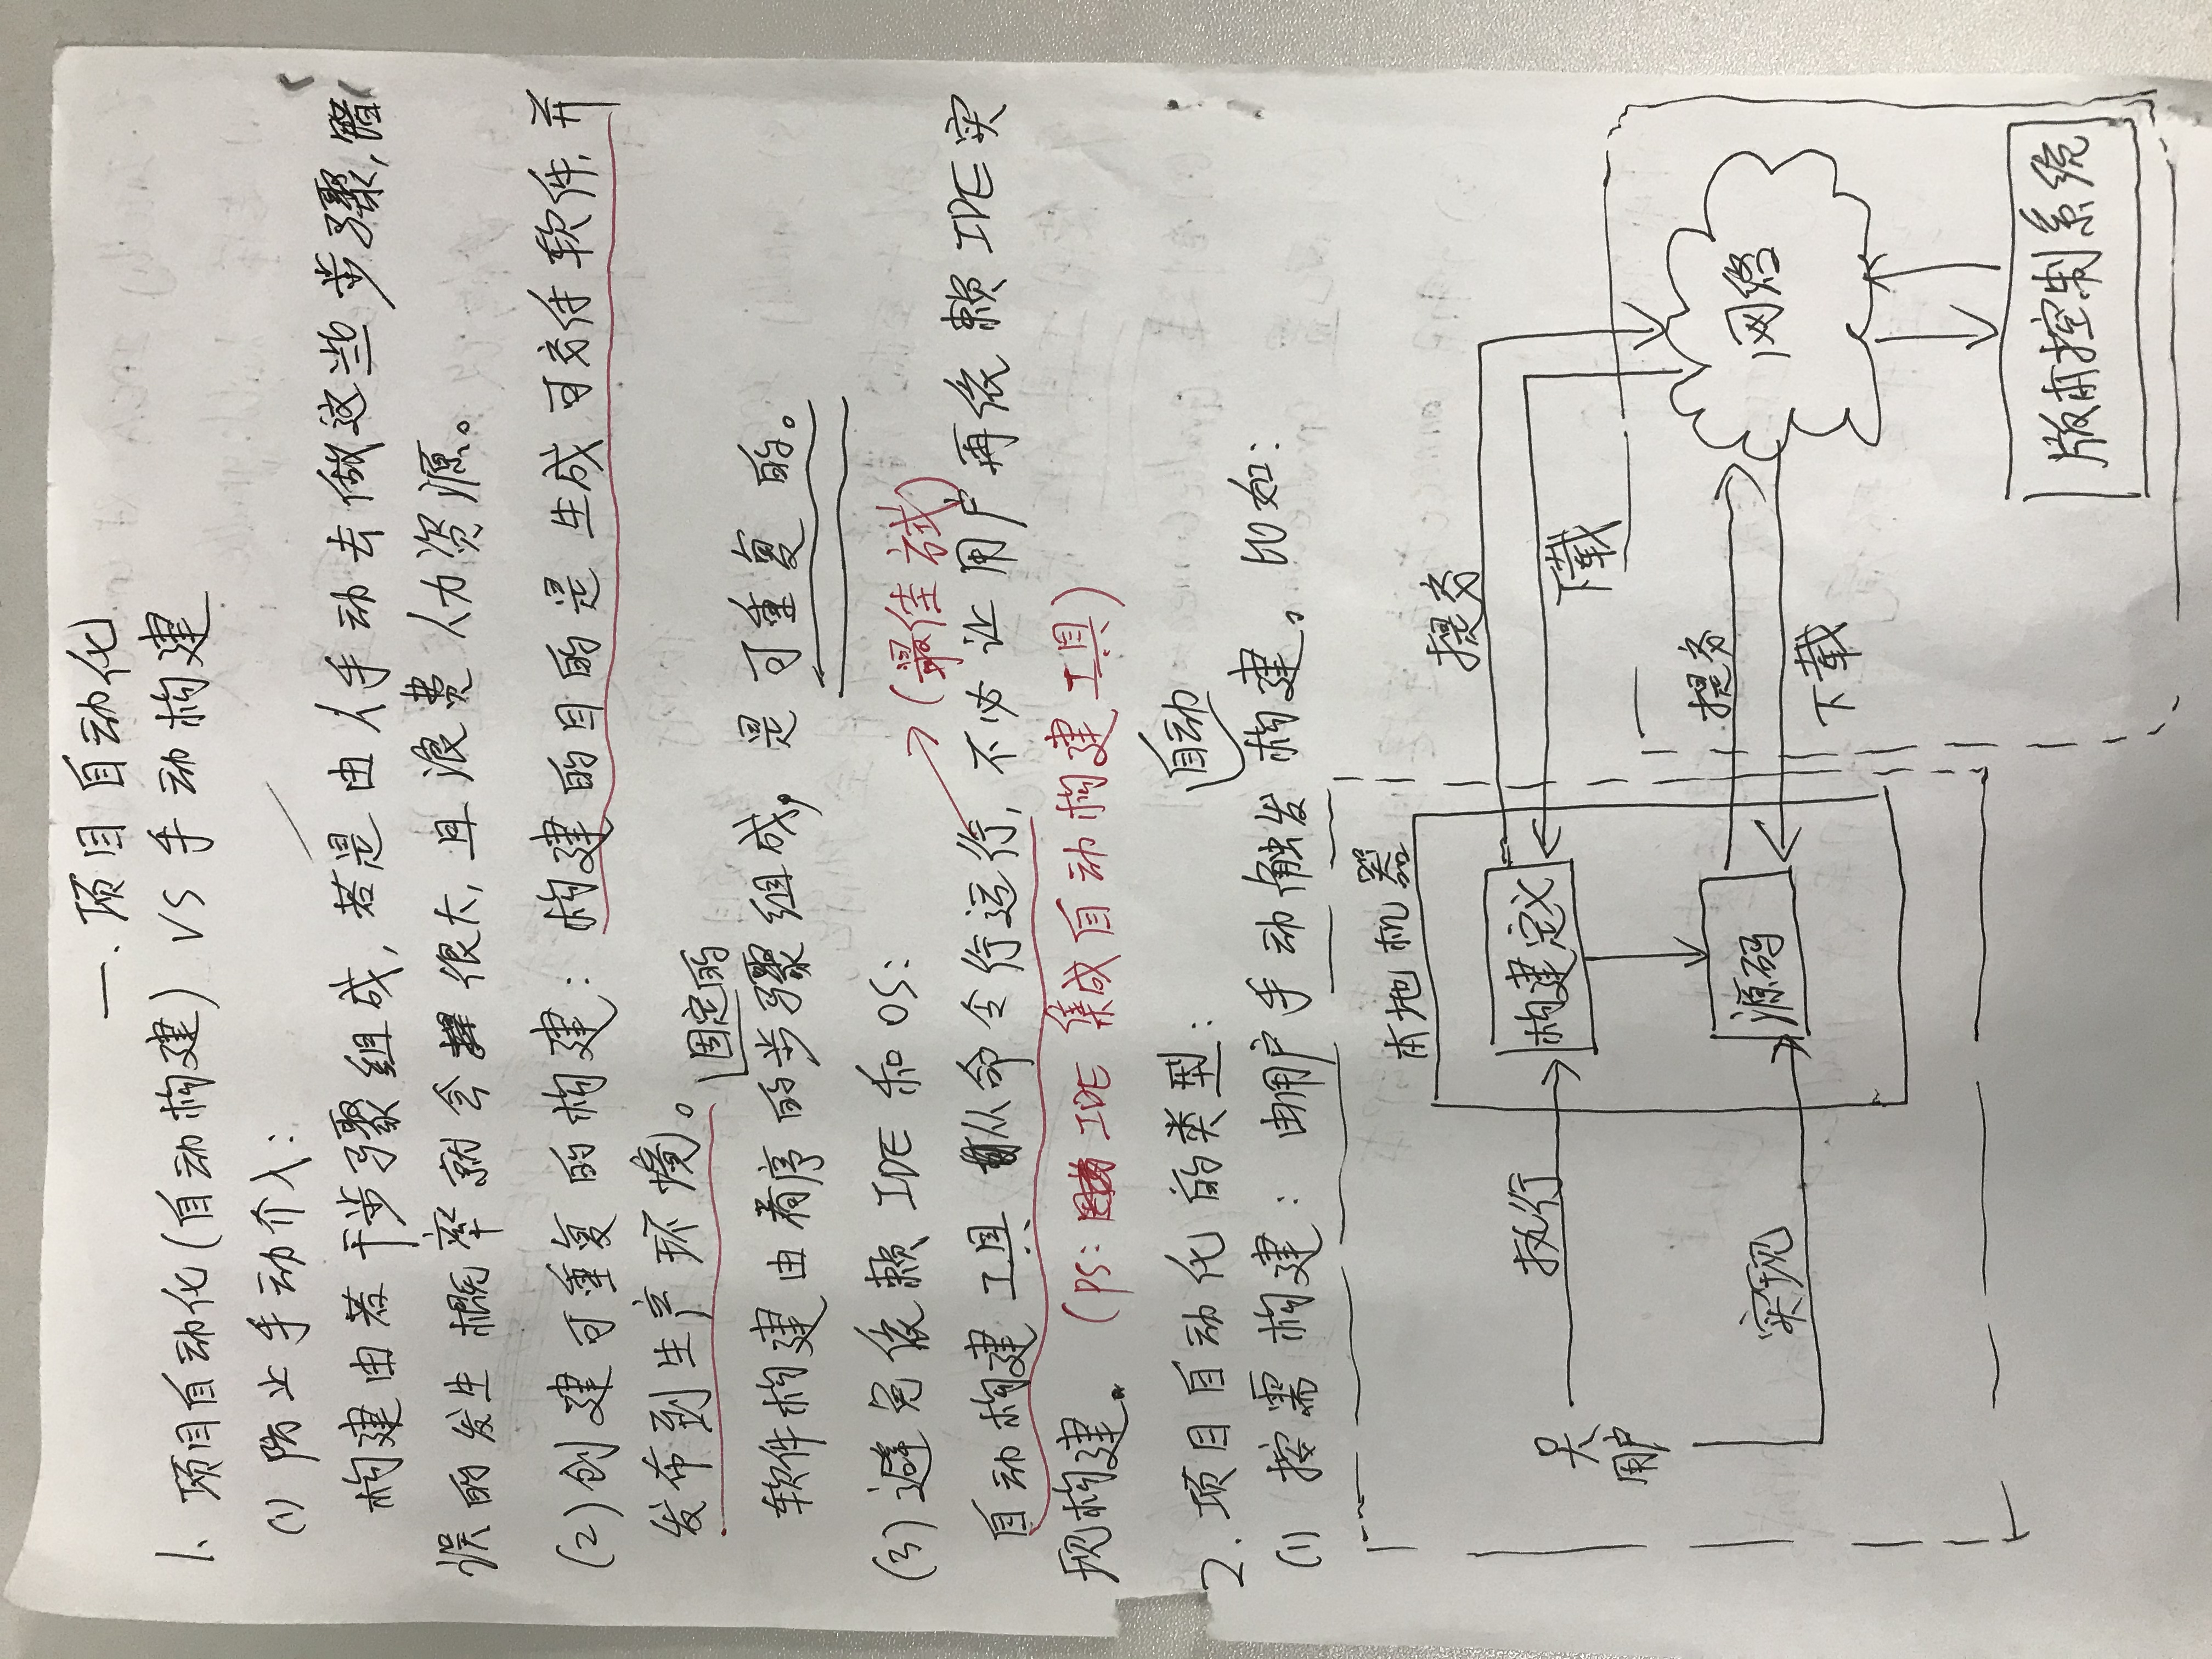 一. 项目自动化
1、项目自动化(自动构建) VS 手动构建
(1) 防止手动介入:
构建由若干步骤组成, 若是由人手动去做这些步骤, 错
误的发生概率就会很大, 且浪费人力资源。
(2) 创建可重复的构建: 构建的目的是生成可交付软件, 并
发布到生产环境。
固定的
软件构建由有序的步骤组成, 是可重复的。
(3) 避免依赖 IDE 和 OS:
(最佳方式)
自动构建工具从命令行运行, 不必让用户再依赖 IDE 实
现构建。 (PS: IDE 集成自动构建工具)
2. 项目自动化的类型:
自动
(1) 按需构建: 由用户手动触发构建。比如:
本地机器
提交
执行
构建定义
下载
用户
提交
源码
网络
实现
下载
版本控制系统